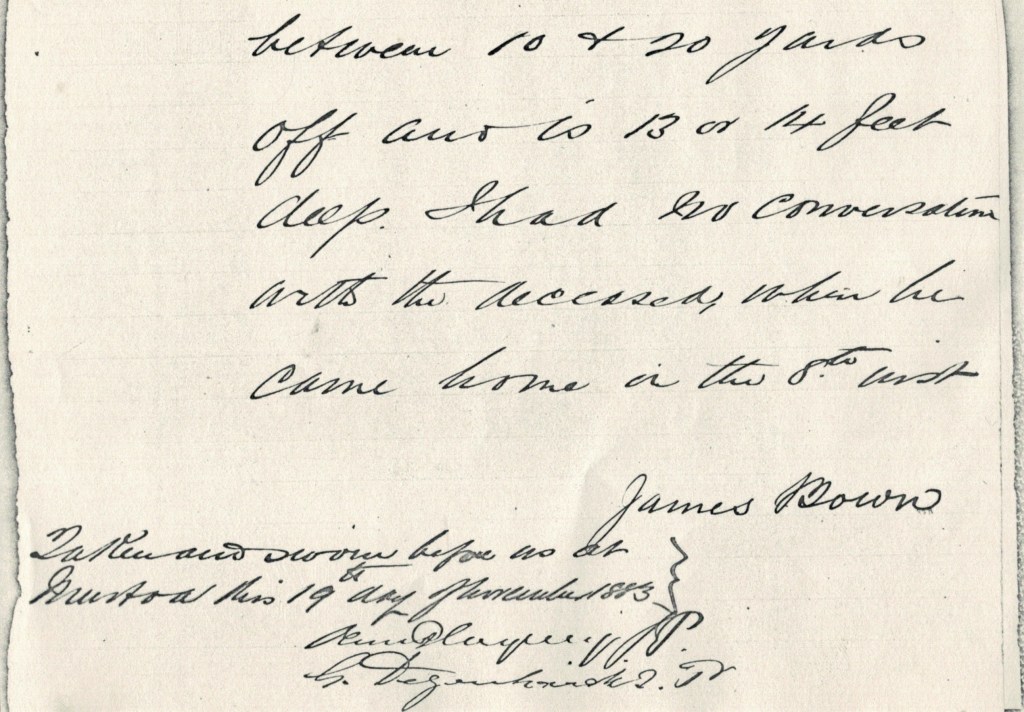 between 10 & 20 yards
off and is 13 or 14 feet
deep. I had no conversation
with the deceased, when he
came home on the 8th inst
James Bown
Taken and sworn before us at
Murtoa this 19th day of November 1883
J.P.
G. Degenhardt J.P.